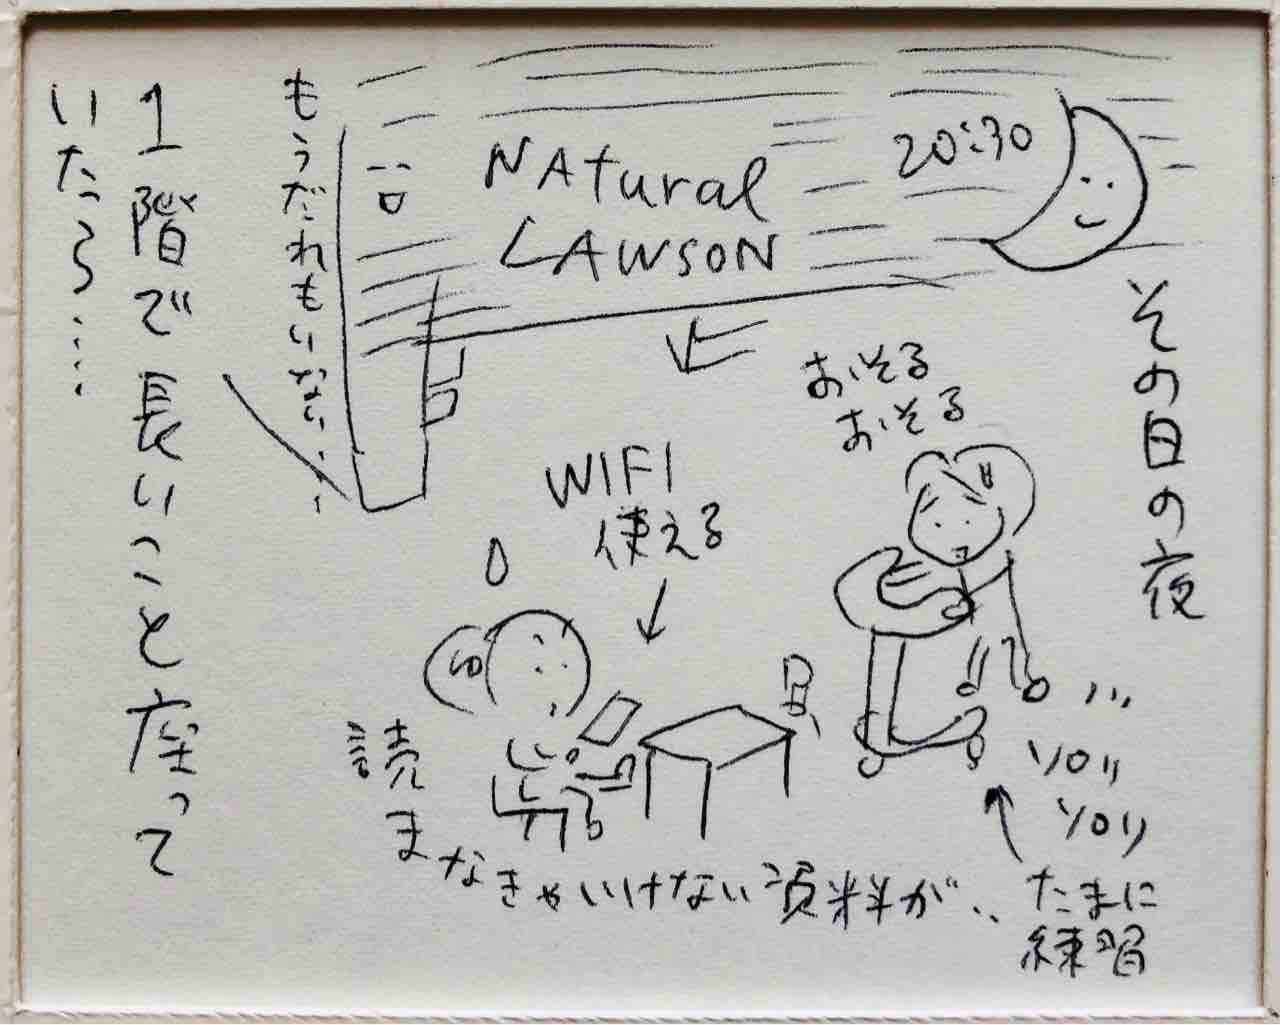 その日の夜
20:30
NAtural
LAWSON
おそる
おそる
ソロリ
ソロリ
たまに
練習
WIFI
使える
読まなきゃいけない資料が..
もうだれもいない...
1階で長いこと座って
いたら...